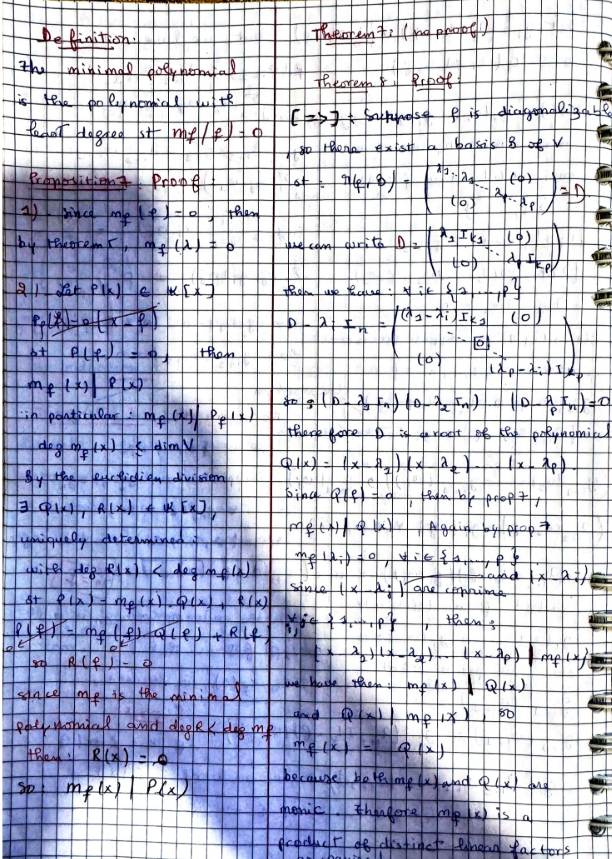 Definition:
The minimal polynomial
is the polynomial with
least degree st m_f(f) = 0
Proposition 7: Proof:
1) Since m_f(f) = 0, then
by theorem 5, m_f(λ) = 0
2) Let P(x) ∈ K[x]
st P(f) = 0, then
m_f(x) | P(x)
in particular: m_f(x) | P_f(x)
deg m_f(x) ≤ dim V
By the euclidien division
∃ Q(x), R(x) ∈ K[x],
uniquely determined:
with deg R(x) < deg m_f(x)
st P(x) = m_f(x). Q(x) + R(x)
P(f) = m_f(f) Q(f) + R(f)
so R(f) = 0
since m_f is the minimal
polynomial and deg R < deg m_f
then: R(x) = 0
so: m_f(x) | P(x)
Theorem 7: (no proof)
Theorem 8: Proof:
[=>]: Suppose f is diagonalizable
, so there exist a basis B of V
st: M(f, B) = (λ1.. λ1 ... (0) (0) λp.. λp) = D
we can write D = (λ1 I_k1 (0) (0) λp I_kp)
then we have: ∀ i ∈ {1, ..., p}
D - λi In = ((λ1-λi) I_k1 (0) ... 0 ... (0) (λp-λi) I_kp)
so: (D-λ1 In)(D-λ2 In) ... (D-λp In) = 0
therefore D is a root of the polynomial
Q(x) = (x-λ1)(x-λ2) ... (x-λp).
Since Q(f) = 0, then by prop 7,
m_f(x) | Q(x), Again by prop 7
m_f(λi) = 0, ∀ i ∈ {1, ..., p}
since (x-λj) and (x-λi) are coprime
∀ i, j ∈ {1, ..., p}, then:
(x-λ1)(x-λ2) ... (x-λp) | m_f(x)
we have then: m_f(x) | Q(x)
and Q(x) | m_f(x), so
m_f(x) = Q(x)
because both m_f(x) and Q(x) are
monic. therfore m_f(x) is a
product of distinct linear factors